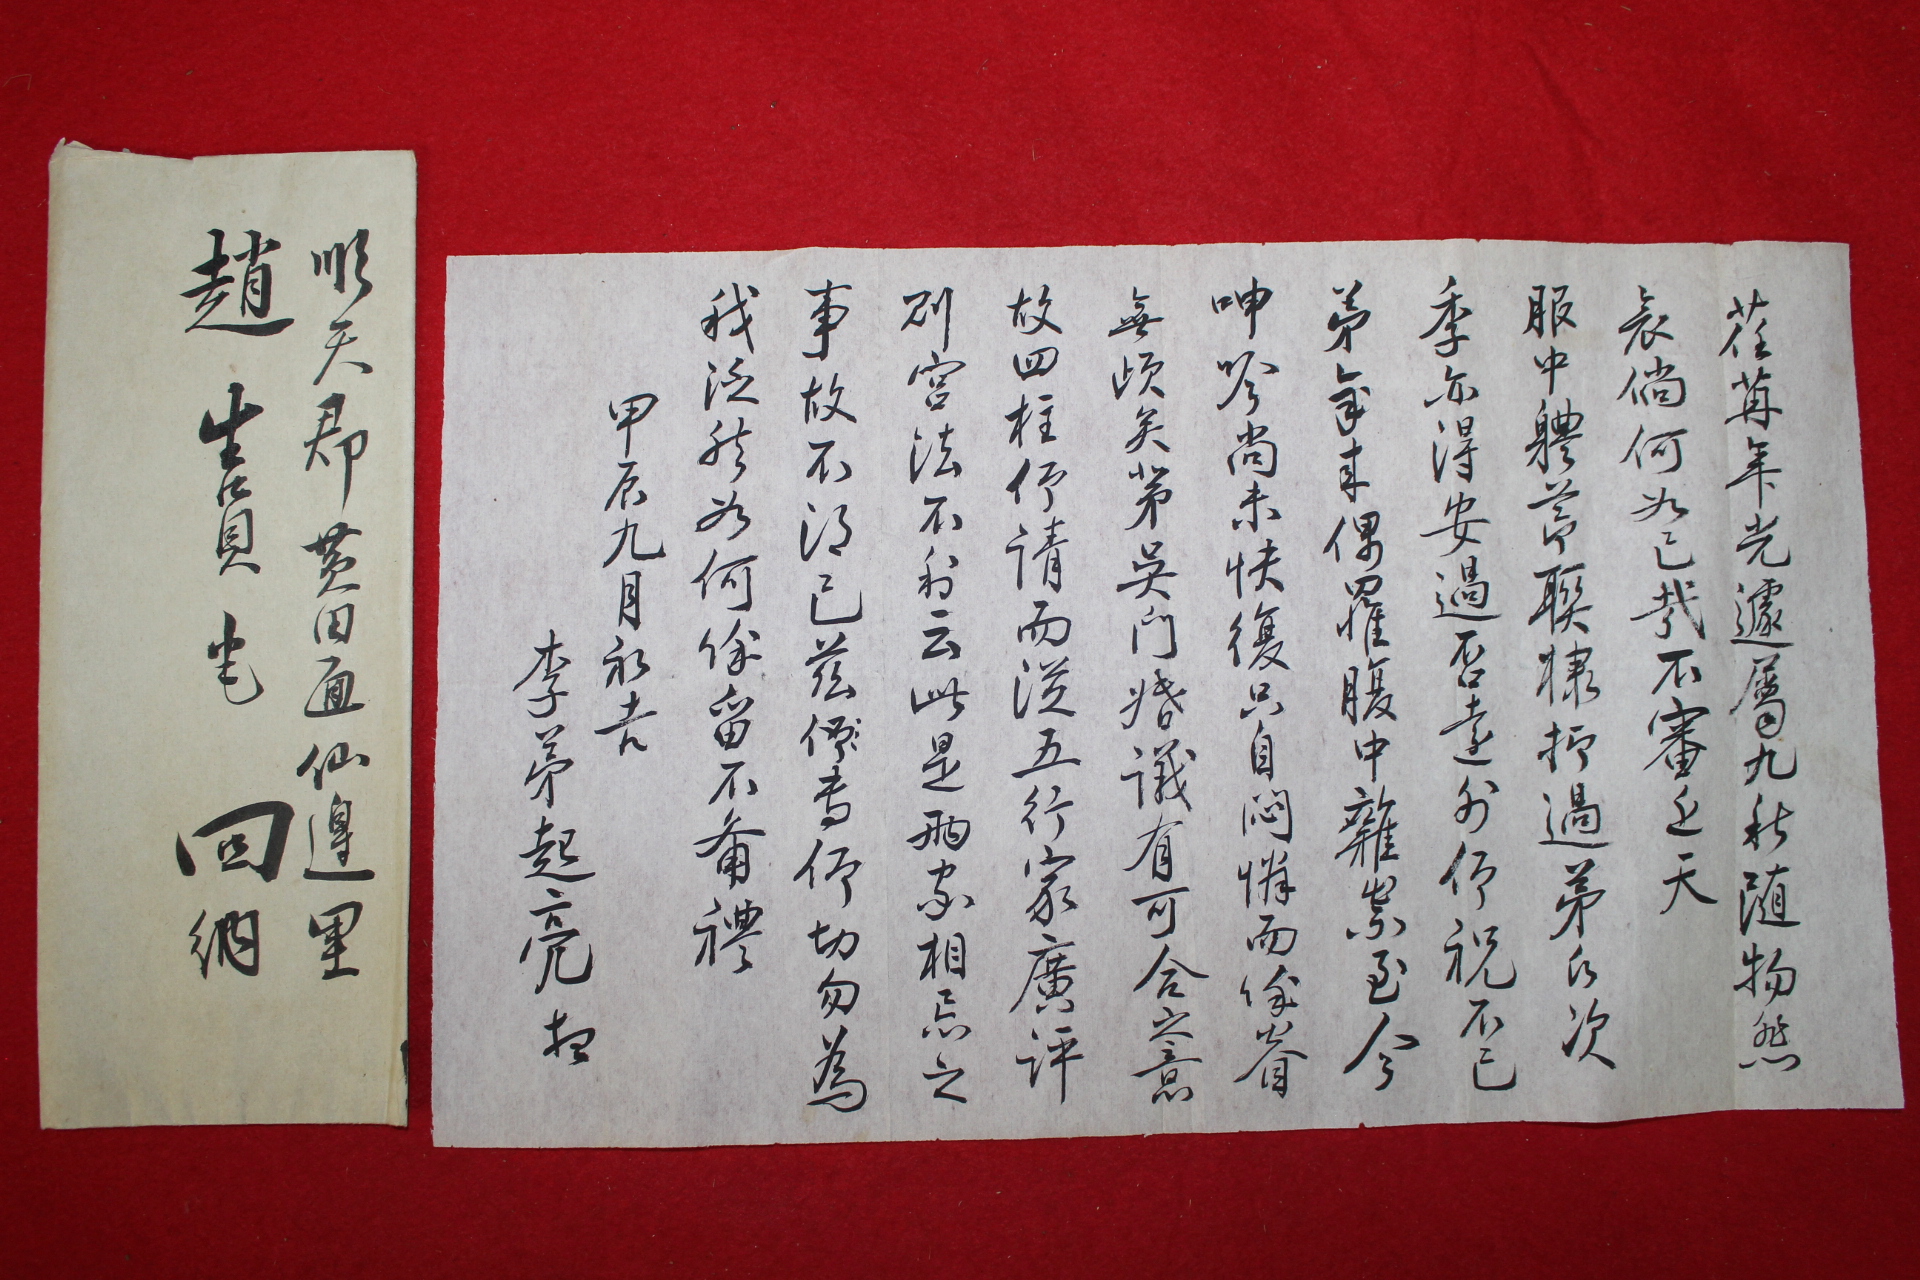 荏苒年光遽屬九秋隨物感
哀倘何如已哉不審邇天
服中體節聯棣撙過第氏次
季亦得安過否遠外仰祝不已
弟年來偶罹腹中難祟至今
呻吟尚未快復只自悶憐而餘眷
無頉矣第吳門婚議有可合之意
故四柱仰請而從五行家廣評
則宮法不利云此是兩家相忌之
事故不得已茲傳專仰切勿為
我泛然如何餘留不備禮
甲辰九月初吉
李弟起亮 拜
順天郡黃田面仙邊里
趙 生員 宅 回納